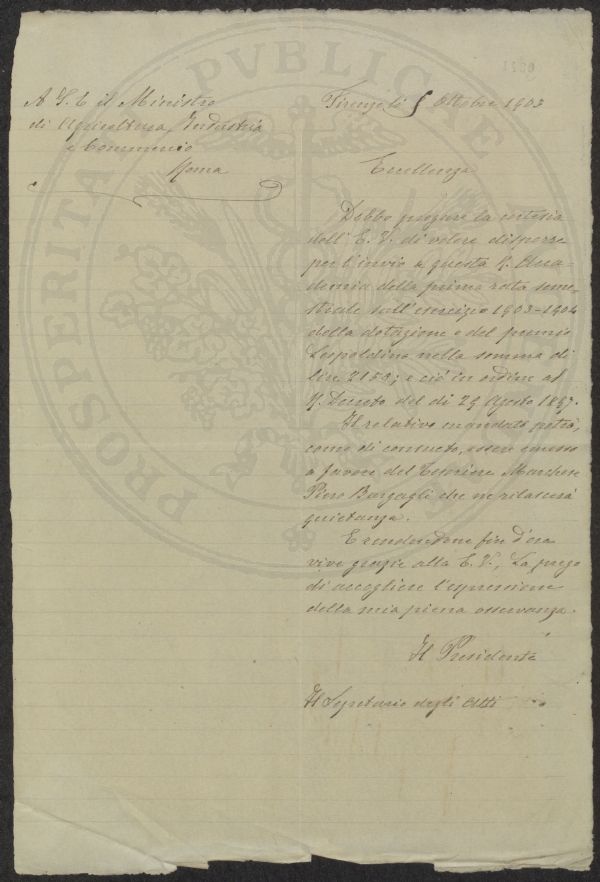 A S. E il Ministro
di Agricoltura, Industria
e Commercio
Roma
Firenze li 5 Ottobre 1903
Eccellenza
Debbo pregare la cortesia
dell' E. V. di volere disporre
per l'invio a questa R. Acca-
demia della prima rata seme-
strale sull'esercizio 1903-1904
della dotazione e del premio
Leopoldino nella somma di
lire 2159; e ciò in ordine al
R. Decreto del di 29 Agosto 1867.
Il relativo mandato potrà,
come di consueto, essere emesso
a favore del Tesoriere Marchese
Piero Bargagli che ne rilascerà
quietanza.
E rendendone fin d'ora
vive grazie alla E. V., La prego
di accogliere l'espressione
della mia piena osservanza.
Il Presidente
Il Segretario degli Atti
PROSPERITATI PVBLICAE